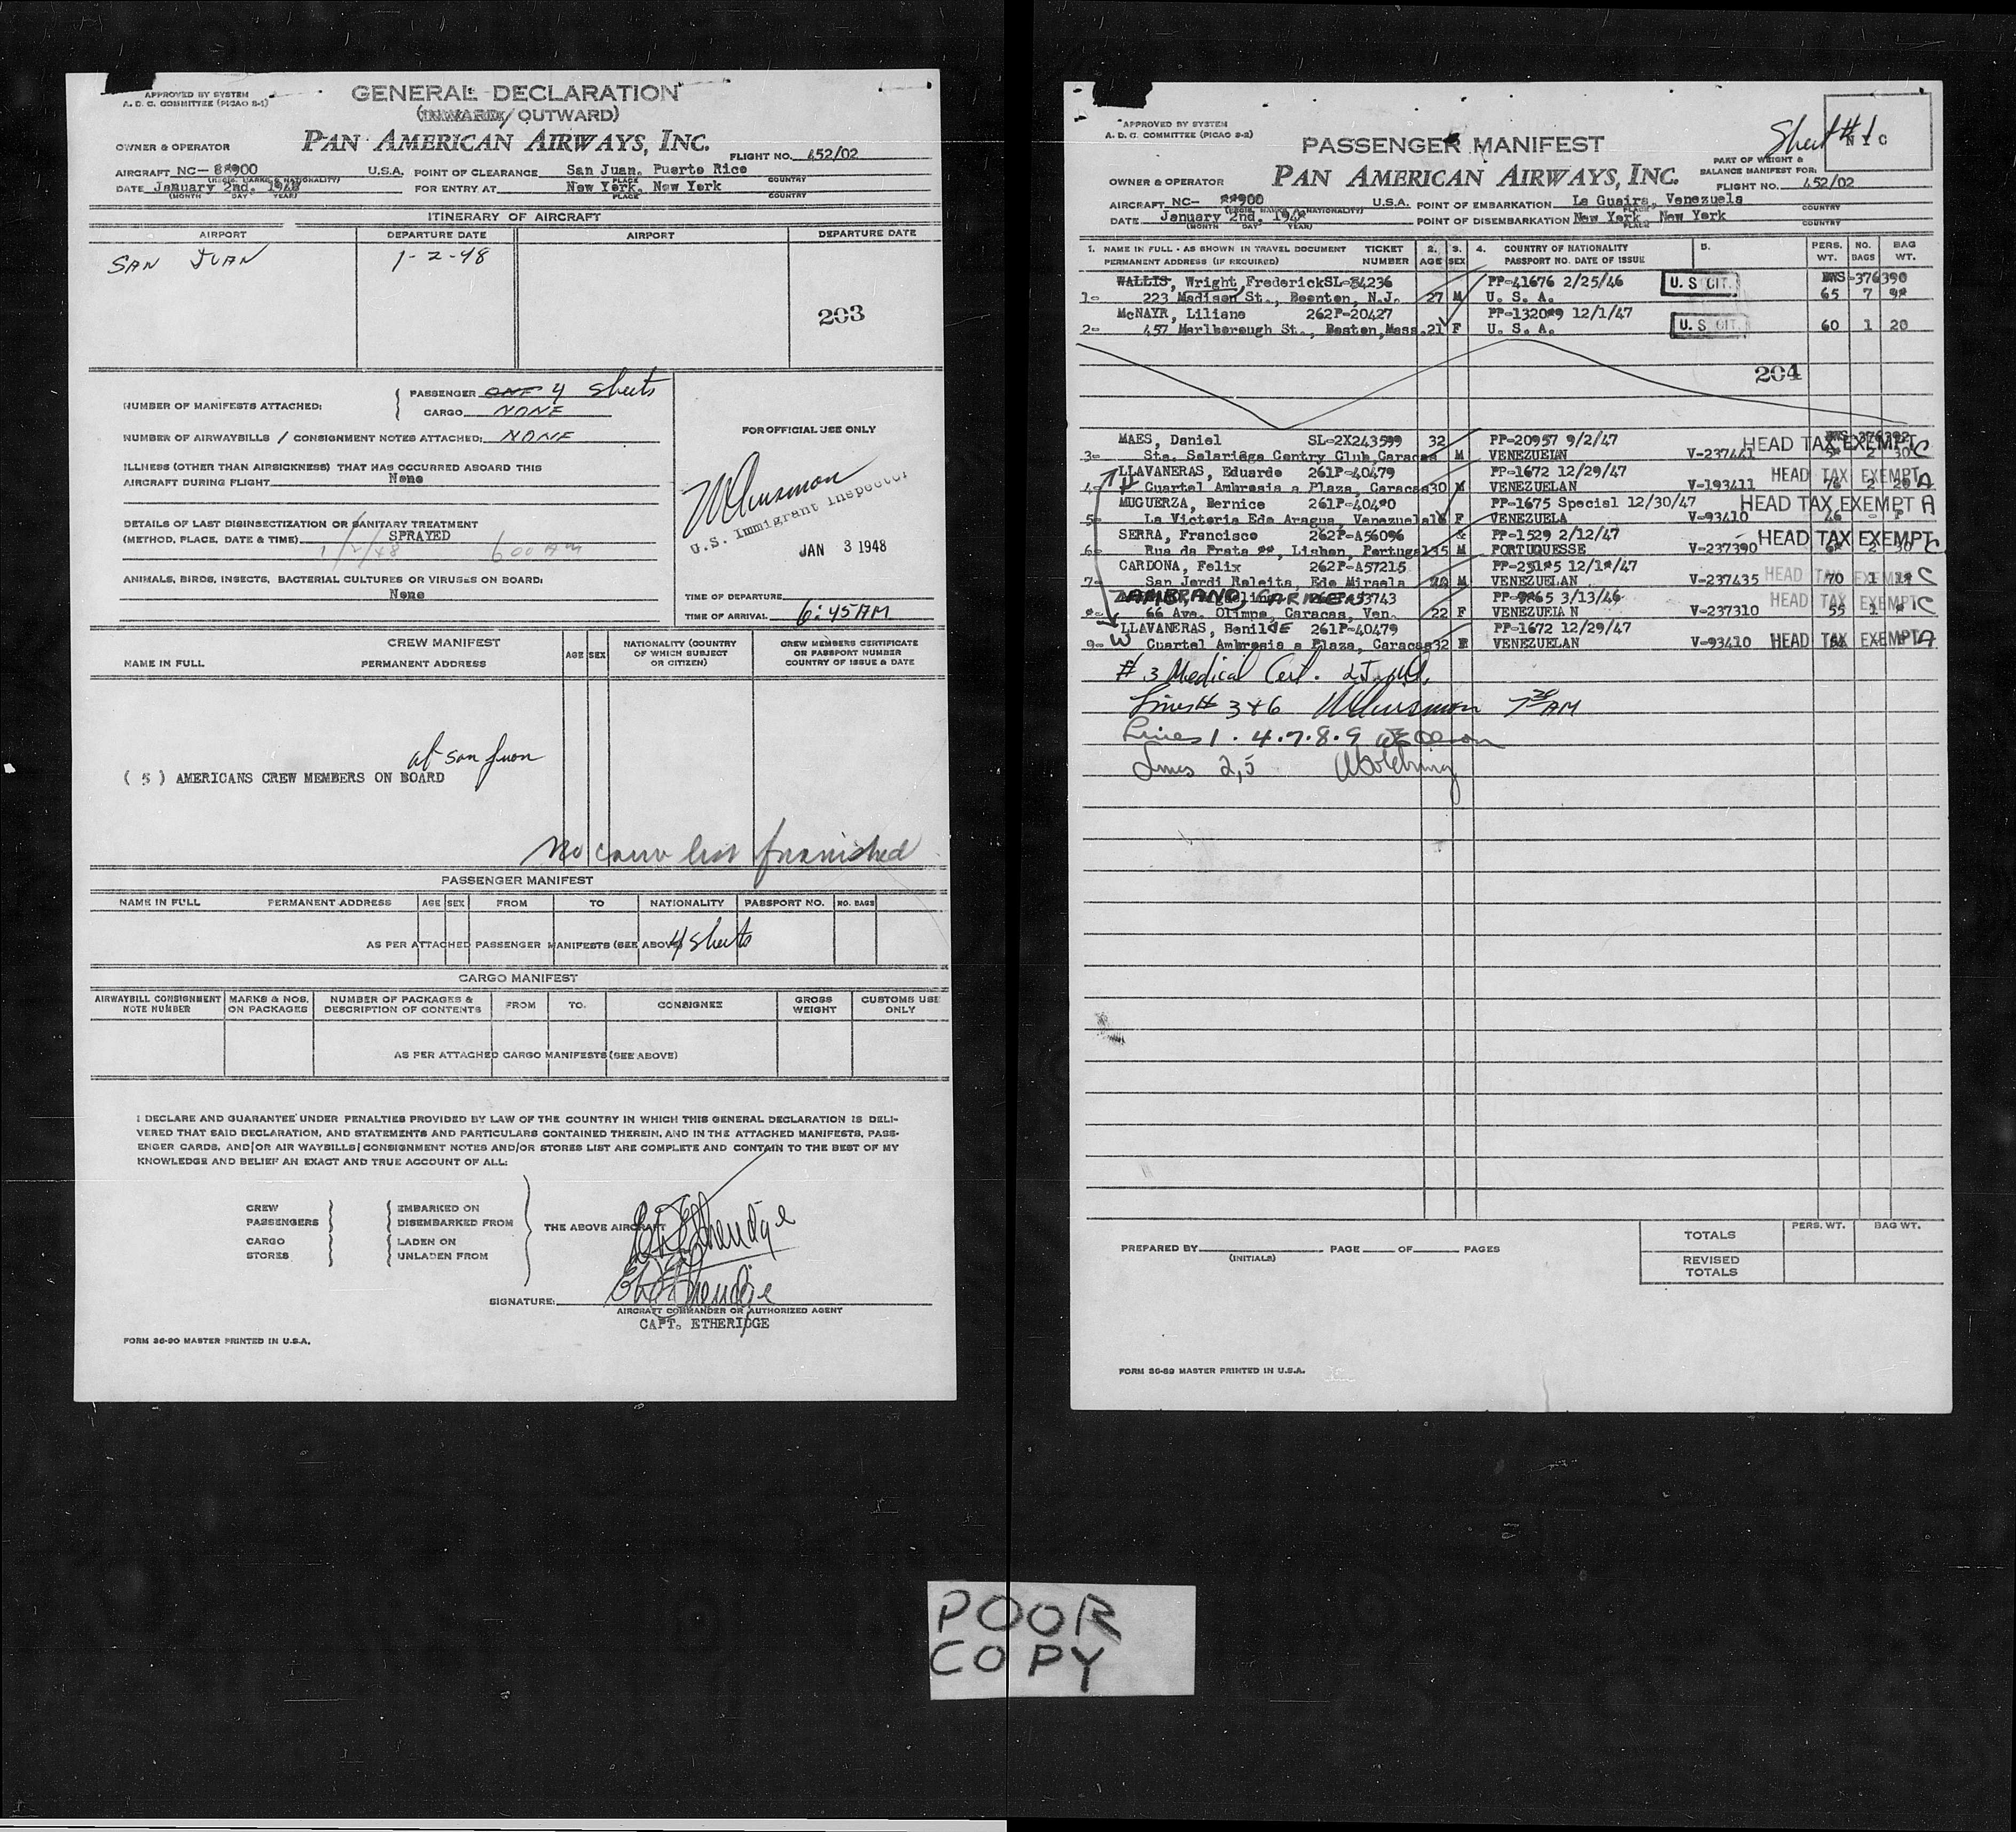 APPROVED BY SYSTEM
A. D. C. COMMITTEE (PICAO S-1)
GENERAL DECLARATION
(INWARD/OUTWARD)
OWNER & OPERATOR
PAN AMERICAN AIRWAYS, INC.
FLIGHT NO. 452/02
AIRCRAFT NC- 88900 U.S.A. POINT OF CLEARANCE San Juan, Puerto Rico
(REGIS. MARKS & NATIONALITY) PLACE COUNTRY
DATE January 2nd. 1948 FOR ENTRY AT New York, New York
(MONTH DAY YEAR) PLACE COUNTRY
ITINERARY OF AIRCRAFT
AIRPORT DEPARTURE DATE AIRPORT DEPARTURE DATE
SAN JUAN 1-2-48
203
NUMBER OF MANIFESTS ATTACHED: PASSENGER ONE 4 sheets
CARGO NONE
NUMBER OF AIRWAYBILLS / CONSIGNMENT NOTES ATTACHED: NONE
FOR OFFICIAL USE ONLY
ILLNESS (OTHER THAN AIRSICKNESS) THAT HAS OCCURRED ABOARD THIS
AIRCRAFT DURING FLIGHT None
U.S. Immigrant Inspector
DETAILS OF LAST DISINSECTIZATION OR SANITARY TREATMENT
(METHOD, PLACE, DATE & TIME) SPRAYED
1/2/48 600 AM
JAN 3 1948
ANIMALS, BIRDS, INSECTS, BACTERIAL CULTURES OR VIRUSES ON BOARD:
None
TIME OF DEPARTURE
TIME OF ARRIVAL 6:45 AM
CREW MANIFEST
NAME IN FULL PERMANENT ADDRESS AGE SEX
NATIONALITY (COUNTRY OF WHICH SUBJECT OR CITIZEN)
CREW MEMBERS CERTIFICATE OR PASSPORT NUMBER COUNTRY OF ISSUE & DATE
at San Juan
( 5 ) AMERICANS CREW MEMBERS ON BOARD
No crew list furnished
PASSENGER MANIFEST
NAME IN FULL PERMANENT ADDRESS AGE SEX FROM TO NATIONALITY PASSPORT NO. NO. BAGS
AS PER ATTACHED PASSENGER MANIFESTS (SEE ABOVE) 4 sheets
CARGO MANIFEST
AIRWAYBILL CONSIGNMENT NOTE NUMBER
MARKS & NOS. ON PACKAGES
NUMBER OF PACKAGES & DESCRIPTION OF CONTENTS
FROM TO. CONSIGNEE
GROSS WEIGHT
CUSTOMS USE ONLY
AS PER ATTACHED CARGO MANIFESTS (SEE ABOVE)
I DECLARE AND GUARANTEE UNDER PENALTIES PROVIDED BY LAW OF THE COUNTRY IN WHICH THIS GENERAL DECLARATION IS DELI-
VERED THAT SAID DECLARATION, AND STATEMENTS AND PARTICULARS CONTAINED THEREIN, AND IN THE ATTACHED MANIFESTS, PASS-
ENGER CARDS, AND/OR AIR WAYBILLS/CONSIGNMENT NOTES AND/OR STORES LIST ARE COMPLETE AND CONTAIN TO THE BEST OF MY
KNOWLEDGE AND BELIEF AN EXACT AND TRUE ACCOUNT OF ALL:
CREW EMBARKED ON
PASSENGERS DISEMBARKED FROM THE ABOVE AIRCRAFT
CARGO LADEN ON
STORES UNLADEN FROM
SIGNATURE:
AIRCRAFT COMMANDER OR AUTHORIZED AGENT
CAPT. ETHERIDGE
FORM 36-90 MASTER PRINTED IN U.S.A.
APPROVED BY SYSTEM
A. D. C. COMMITTEE (PICAO S-2)
Sheet #1
NYC
PASSENGER MANIFEST
PART OF WEIGHT &
BALANCE MANIFEST FOR:
OWNER & OPERATOR
PAN AMERICAN AIRWAYS, INC.
FLIGHT NO. 452/02
AIRCRAFT NC- **900 U.S.A. POINT OF EMBARKATION La Guaira, Venezuela
(REGIS. MARKS & NATIONALITY) PLACE COUNTRY
DATE January 2nd. 194* POINT OF DISEMBARKATION New York, New York
(MONTH DAY YEAR) PLACE COUNTRY
1. NAME IN FULL - AS SHOWN IN TRAVEL DOCUMENT TICKET 2. 3. 4. COUNTRY OF NATIONALITY 5. PERS. NO. BAG
PERMANENT ADDRESS (IF REQUIRED) NUMBER AGE SEX PASSPORT NO. DATE OF ISSUE WT. BAGS WT.
WALLIS, Wright, Frederick SL-84236 PP-41676 2/25/46 U. S. CIT. BWS-376390
1- 223 Madison St., Boonton, N.J. 27 M U. S. A. 65 7 9*
McNAYR, Liliane 262P-20427 PP-1320*9 12/1/47
2- 457 Marlborough St., Boston, Mass. 21 F U. S. A. U. S. CIT. 60 1 20
204
MAES, Daniel SL-2X243599 32 PP-20957 9/2/47 HEAD TAX EXEMPT C
3- Sta. Selariàga Contry Club, Caracas M VENEZUELAN V-237441 2 30
LLAVANERAS, Eduardo 261P-40479 PP-1672 12/29/47 HEAD TAX EXEMPT A
4- Cuartel Ambrosio a Plaza, Caracas 30 M VENEZUELAN V-193411 76 2 20
MUGUERZA, Bernice 261P-404*0 PP-1675 Special 12/30/47 HEAD TAX EXEMPT A
5- La Victoria Edo Aragua, Venezuela 16 F VENEZUELA V-93410 46
SERRA, Francisco 262P-A56096 PP-1529 2/12/47 HEAD TAX EXEMPT C
6- Rua da Prata **, Lisbon, Portugal 35 M PORTUQUESSE V-237390 2 30
CARDONA, Felix 262P-A57215 PP-231*5 12/1*/47
7- San Jordi Raleita, Edo Miraela M VENEZUELAN V-237435 HEAD TAX EXEMPT 70 1 1* C
ZAMBRANO, CARMEN PP-9*65 3/13/46 HEAD TAX EXEMPT
*- 66 Ave. Olimpo, Caracas, Ven. 22 F VENEZUELAN V-237310 55 1 * C
LLAVANERAS, BenildE 261P-40479 PP-1672 12/29/47
9- W Cuartel Ambrosio a Plaza, Caracas 32 F VENEZUELAN V-93410 HEAD TAX EXEMPT A
# 3 Medical Cert.
Lines # 3 & 6 7 30 AM
Lines 1 . 4 . 7 . 8 . 9
Lines 2, 5
PREPARED BY (INITIALS) PAGE OF PAGES
PERS. WT. BAG WT.
TOTALS
REVISED TOTALS
FORM 36-89 MASTER PRINTED IN U.S.A.
POOR
COPY